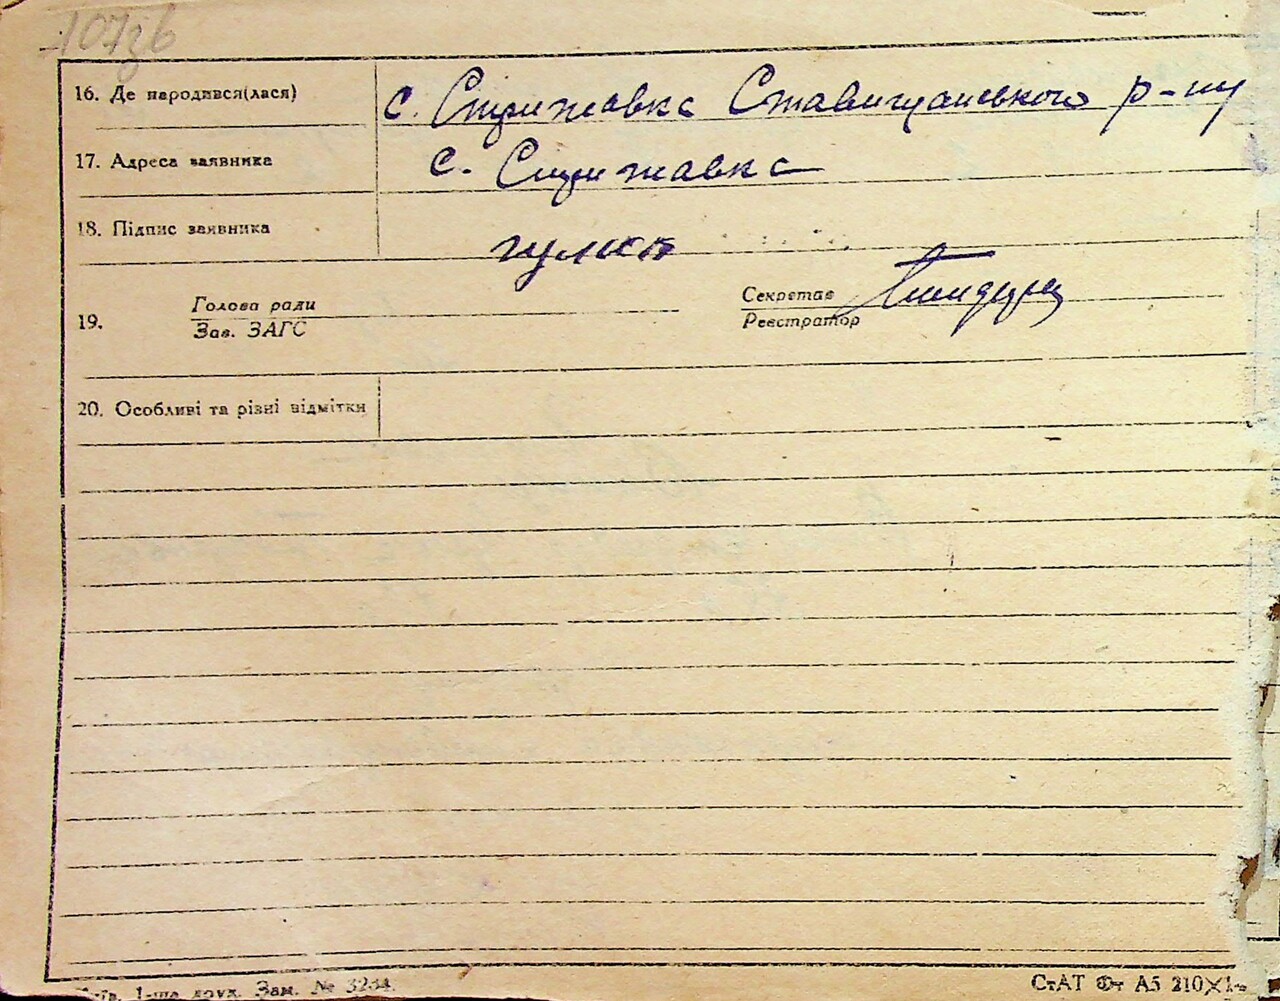 107зв
16. Де народився(лася) с. Стрижавка Ставищанського р-ну
17. Адреса заявника с. Стрижавка
18. Підпис заявника
19. Голова ради Секретар
Зав. ЗАГС Реєстратор
20. Особливі та різні відмітки
1-ша друк. Зам. № 3234.
СтАТ Фт А5 210×1